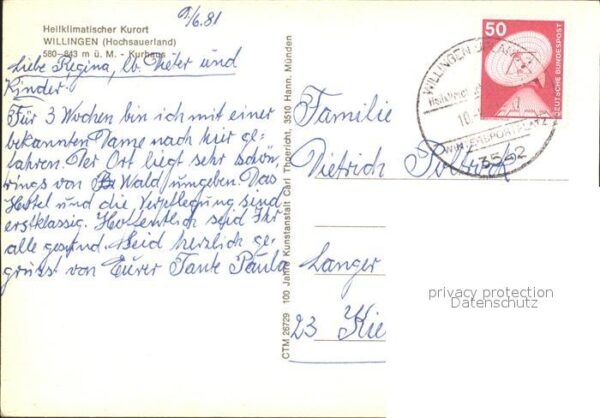 9/6.81
Heilklimatischer Kurort
WILLINGEN (Hochsauerland)
580-843 m ü. M. - Kurhaus
Liebe Regina, lb. Dieter und
Kinder.
Für 3 Wochen bin ich mit einer
bekannten Dame nach hier ge-
fahren. Der Ort liegt sehr schön,
rings von Wald umgeben. Das
Hotel und die Verpflegung sind
erstklassig. Hoffentlich seid Ihr
alle gesund. Seid herzlich ge-
grüsst von Eurer Tante Paula
CTM 26729 100 Jahre Kunstanstalt Carl Thoericht, 3510 Hann. Münden
50
DEUTSCHE BUNDESPOST
WILLINGEN
10.
WINTERSPORTPLATZ
3542
Familie
Dietrich
Langer
23 Kie
privacy protection
Datenschutz